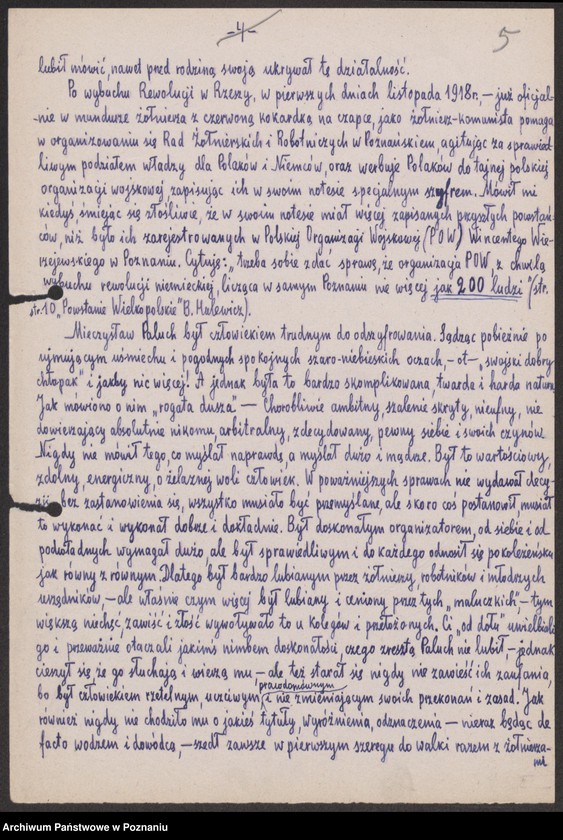 -4-
5
lubił mówić, nawet przed rodziną swoją ukrywał tę działalność.
Po wybuchu Rewolucji w Rzeszy, w pierwszych dniach listopada 1918r, — już oficjal-
-nie w mundurze żołnierza z czerwoną kokardką na czapce, jako żołnierz-komunista pomaga
w organizowaniu się Rad Żołnierskich i Robotniczych w Poznańskiem, agitując za sprawied-
liwym podziałem władzy dla Polaków i Niemców, oraz werbuje Polaków do tajnej polskiej
organizacji wojskowej zapisując ich w swoim notesie specjalnym szyfrem. Mówił mi
kiedyś śmiejąc się złośliwie, że w swoim notesie miał więcej zapisanych przyszłych powstań-
ców, niż było ich zarejestrowanych w Polskiej Organizacji Wojskowej (POW) Wincentego Wie-
rzejewskiego w Poznaniu. Cytuję: „trzeba sobie zdać sprawę, że organizacja POW, z chwilą
wybuchu rewolucji niemieckiej, licząca w samym Poznaniu nie więcej jak 200 ludzi" (str.
str. 10 „Powstanie Wielkopolskie" B. Hulewicz).
Mieczysław Paluch był człowiekiem trudnym do odszyfrowania. Sądząc pobieżnie po
ujmującym uśmiechu i pogodnych spokojnych szaro-niebieskich oczach, — ot —, swojski dobry
chłopak" i jakby nic więcej! A jednak była to bardzo skomplikowana, twarda i harda natura
Jak mówiono o nim „rogata dusza" — Chorobliwie ambitny, szalenie skryty, nieufny, nie
dowierzający absolutnie nikomu arbitralny, zdecydowany, pewny siebie i swoich czynów.
Nigdy nie mówił tego, co myślał naprawdę, a myślał dużo i mądrze. Był to wartościowy,
zdolny, energiczny, o żelaznej woli człowiek. W poważniejszych sprawach nie wydawał decy-
zji bez zastanowienia się, wszystko musiało być przemyślane, ale skoro coś postanowił musiał
to wykonać i wykonał dobrze i dokładnie. Był doskonałym organizatorem, od siebie i od
podwładnych wymagał dużo, ale był sprawiedliwym i do każdego odnosił się po koleżeńsku
jak równy z równym. Dlatego był bardzo lubianym przez żołnierzy, robotników i młodszych
urzędników — ale właśnie czym więcej był lubiany i ceniony przez tych „maluczkich" — tym
większą niechęć, zawiść i złość wywoływało to u kolegów i przełożonych. Ci „od dołu" uwielbiali
go i przeważnie otaczali jakimś nimbem doskonałości, czego zresztą Paluch nie lubił — jednak
cieszył się, że go słuchają i wierzą mu — ale też starał się nigdy nie zawieść ich zaufania,
prawdomównym
bo był człowiekiem rzetelnym, uczciwym i nie zmieniającym swoich przekonań i zasad. Jak
również nigdy nie chodziło mu o jakieś tytuły, wyróżnienia, odznaczenia — nieraz będąc de
facto wodzem i dowódcą, — szedł zawsze w pierwszym szeregu do walki razem z żołnierza-
mi
Archiwum Państwowe w Poznaniu